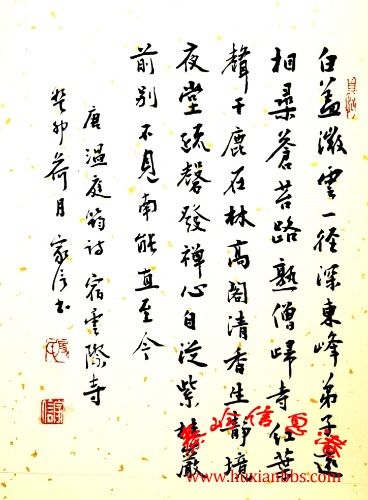 白盖微雲一径深東峰弟子遠
相尋蒼苔路熟僧歸寺红葉
聲干鹿在林高阁清香生静境
夜堂疏磬發禅心自從紫桂巖
前别不見南能直至今
唐温庭筠诗宿雲際寺
癸卯荷月家信书
www.huxianbbs.com